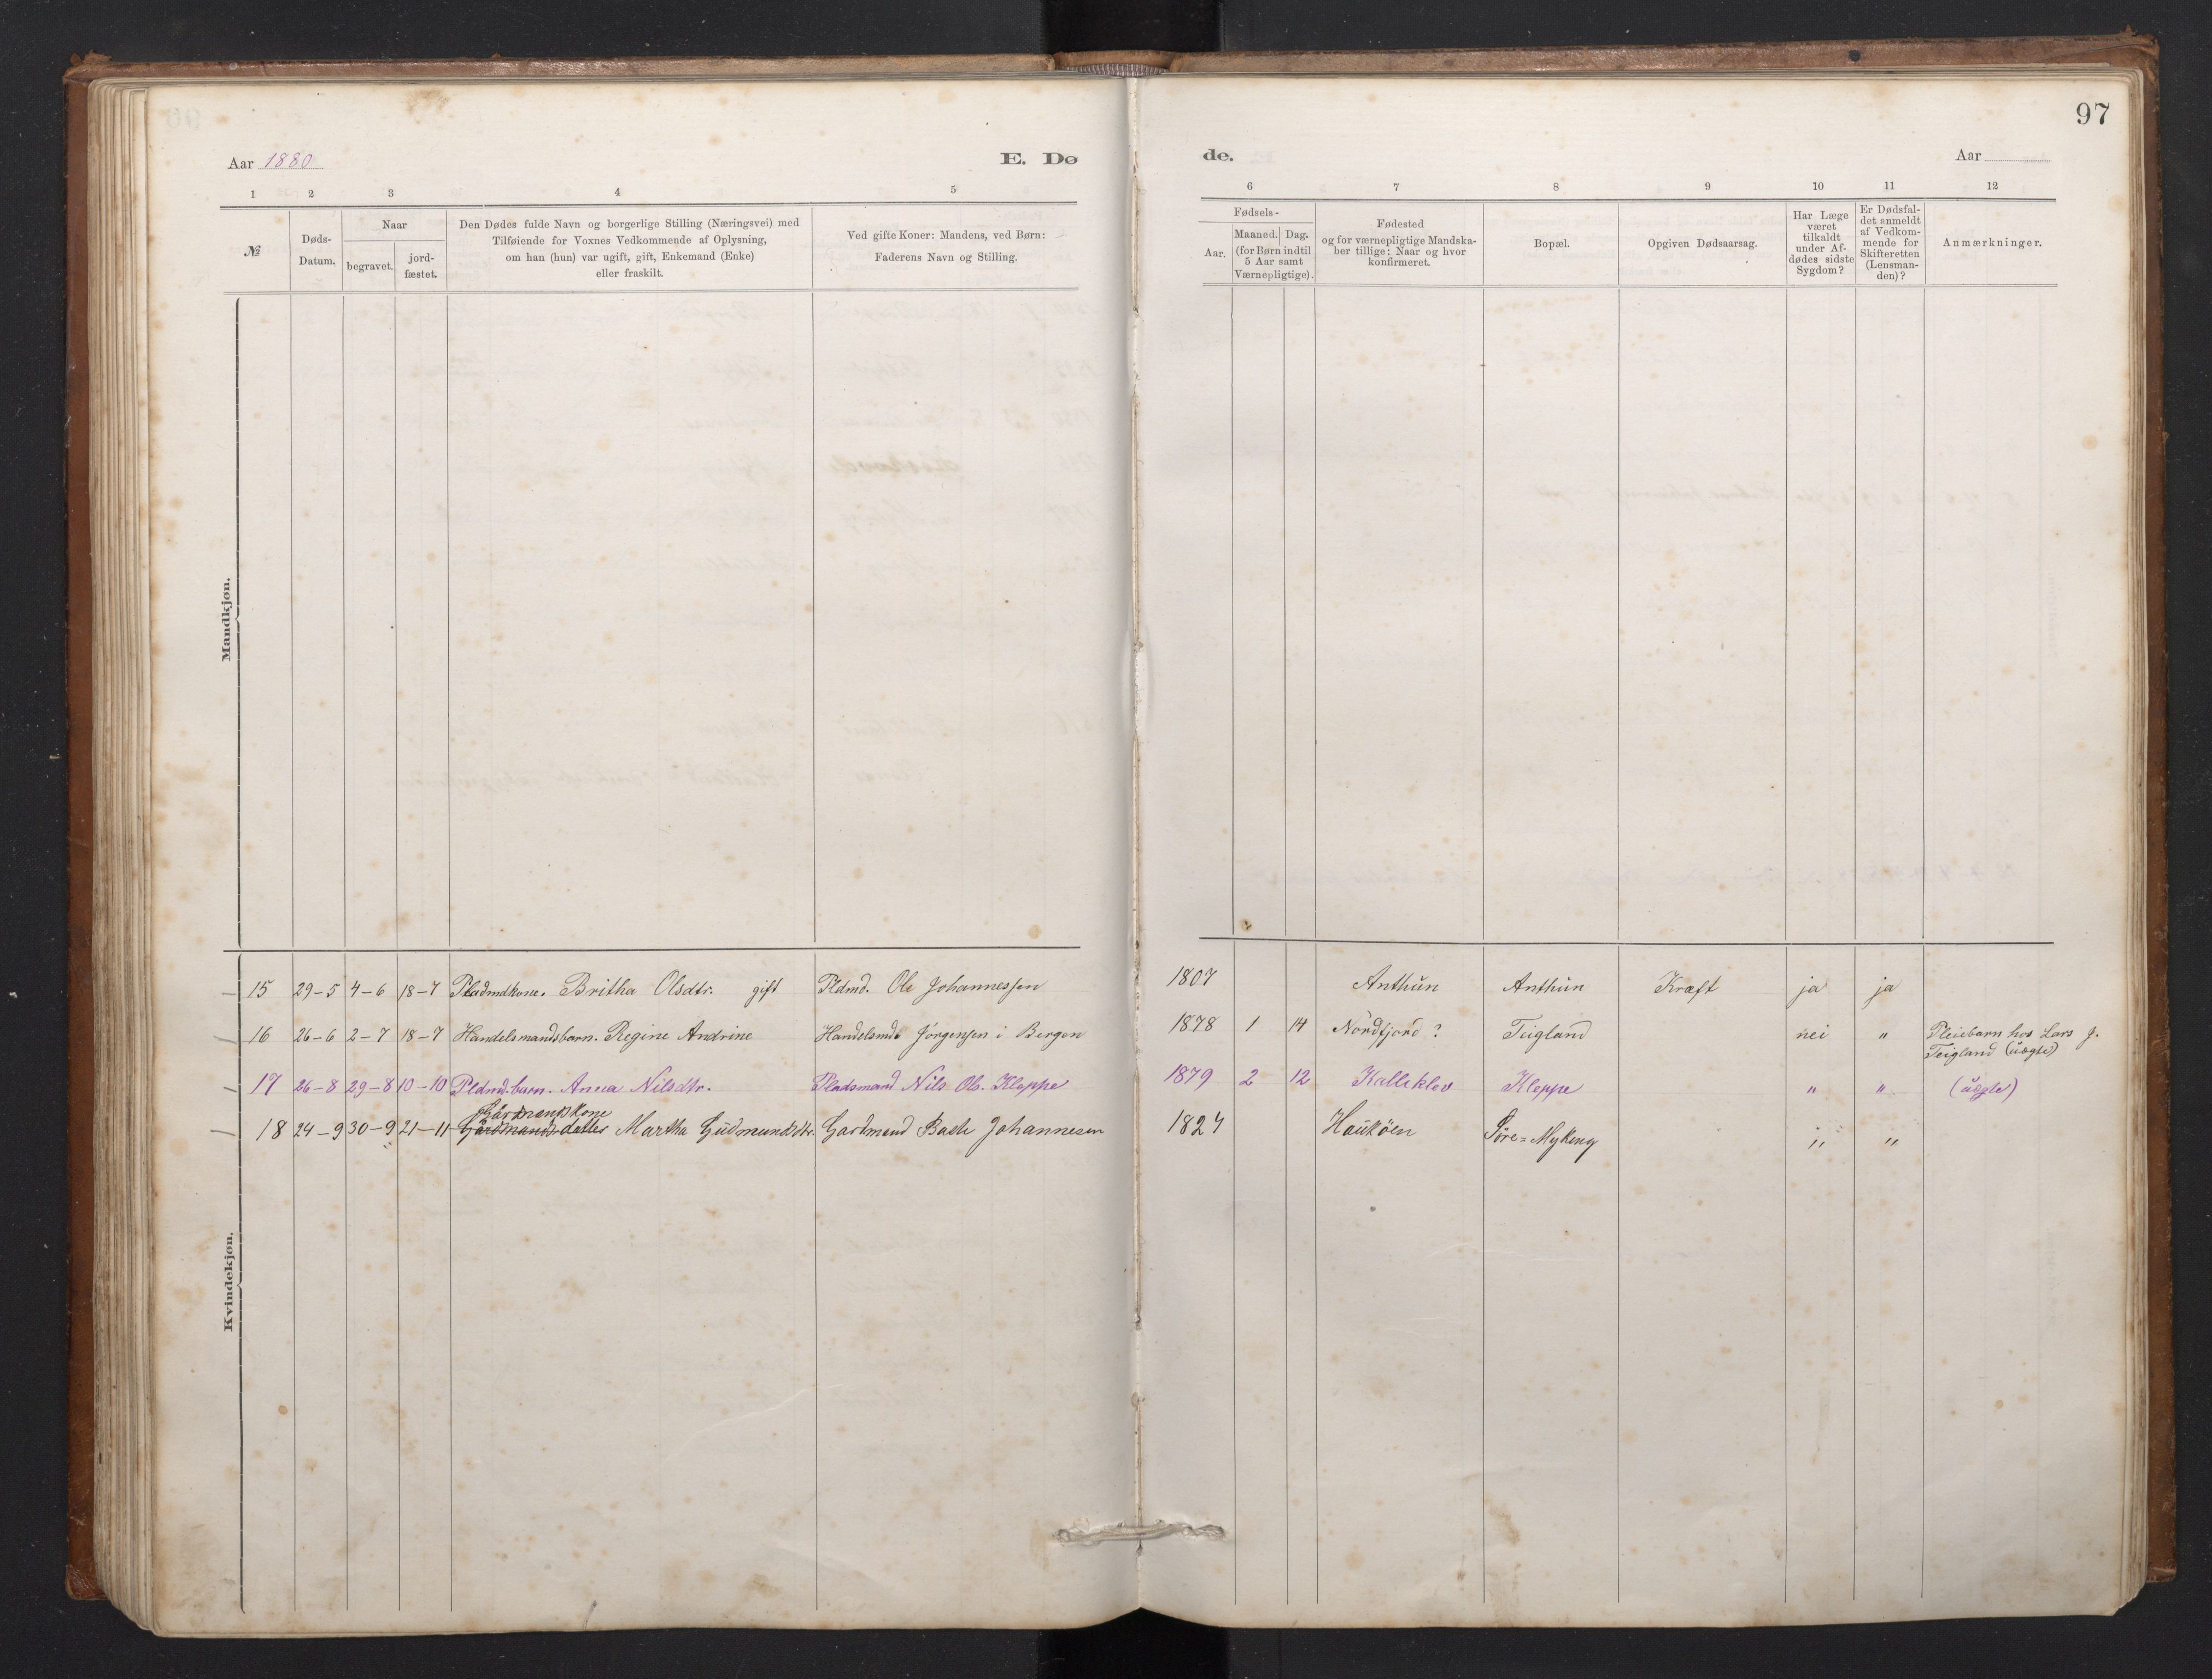 97
Aar 1880
E. Dø
de.
Aar
1 2 3 4 5
6 7 8 9 10 11 12
№
Døds-
Datum.
Naar
begravet.
jord-
fæstet.
Den Dødes fulde Navn og borgerlige Stilling (Næringsvei) med
Tilføiende for Voxnes Vedkommende af Oplysning,
om han (hun) var ugift, gift, Enkemand (Enke)
eller fraskilt.
Ved gifte Koner: Mandens, ved Børn:
Faderens Navn og Stilling.
Fødsels-
Aar.
Maaned. Dag.
(for Børn indtil
5 Aar samt
Værnepligtige).
Fødested
og for værnepligtige Mandska-
ber tillige: Naar og hvor
konfirmeret.
Bopæl.
Opgiven Dødsaarsag.
Har Læge
været
tilkaldt
under Af-
dødes sidste
Sygdom?
Er Dødsfal-
det anmeldt
af Vedkom-
mende for
Skifteretten
(Lensman-
den)?
Anmærkninger.
Mandkjøn.
Kvindekjøn.
15 29-5 4-6 18-7 Pladmdkone. Britha Olsdtr. gift Pldmd. Ole Johannessen 1807 Anthun Anthun Kræft ja ja
16 26-6 2-7 18-7 Handelsmandsbarn. Regine Andrine Handelsmd. Jørgensen i Bergen 1878 1 14 Nordfjord? Teigland nei " Pleiebarn hos Lars J.
Teigland (uægte)
17 26-8 29-8 10-10 Pldmd. barn. Anna Nilsdtr. Pladsmand Nils Ols. Kleppe 1879 2 12 Kalleklev Kleppe " " (uægte)
Gårdmandskone
18 24-9 30-9 21-11 Gårdmandsdatter Martha Gudmundsdtr. Gardmand Johannesen 1824 Haukøen Søre=Myking " "